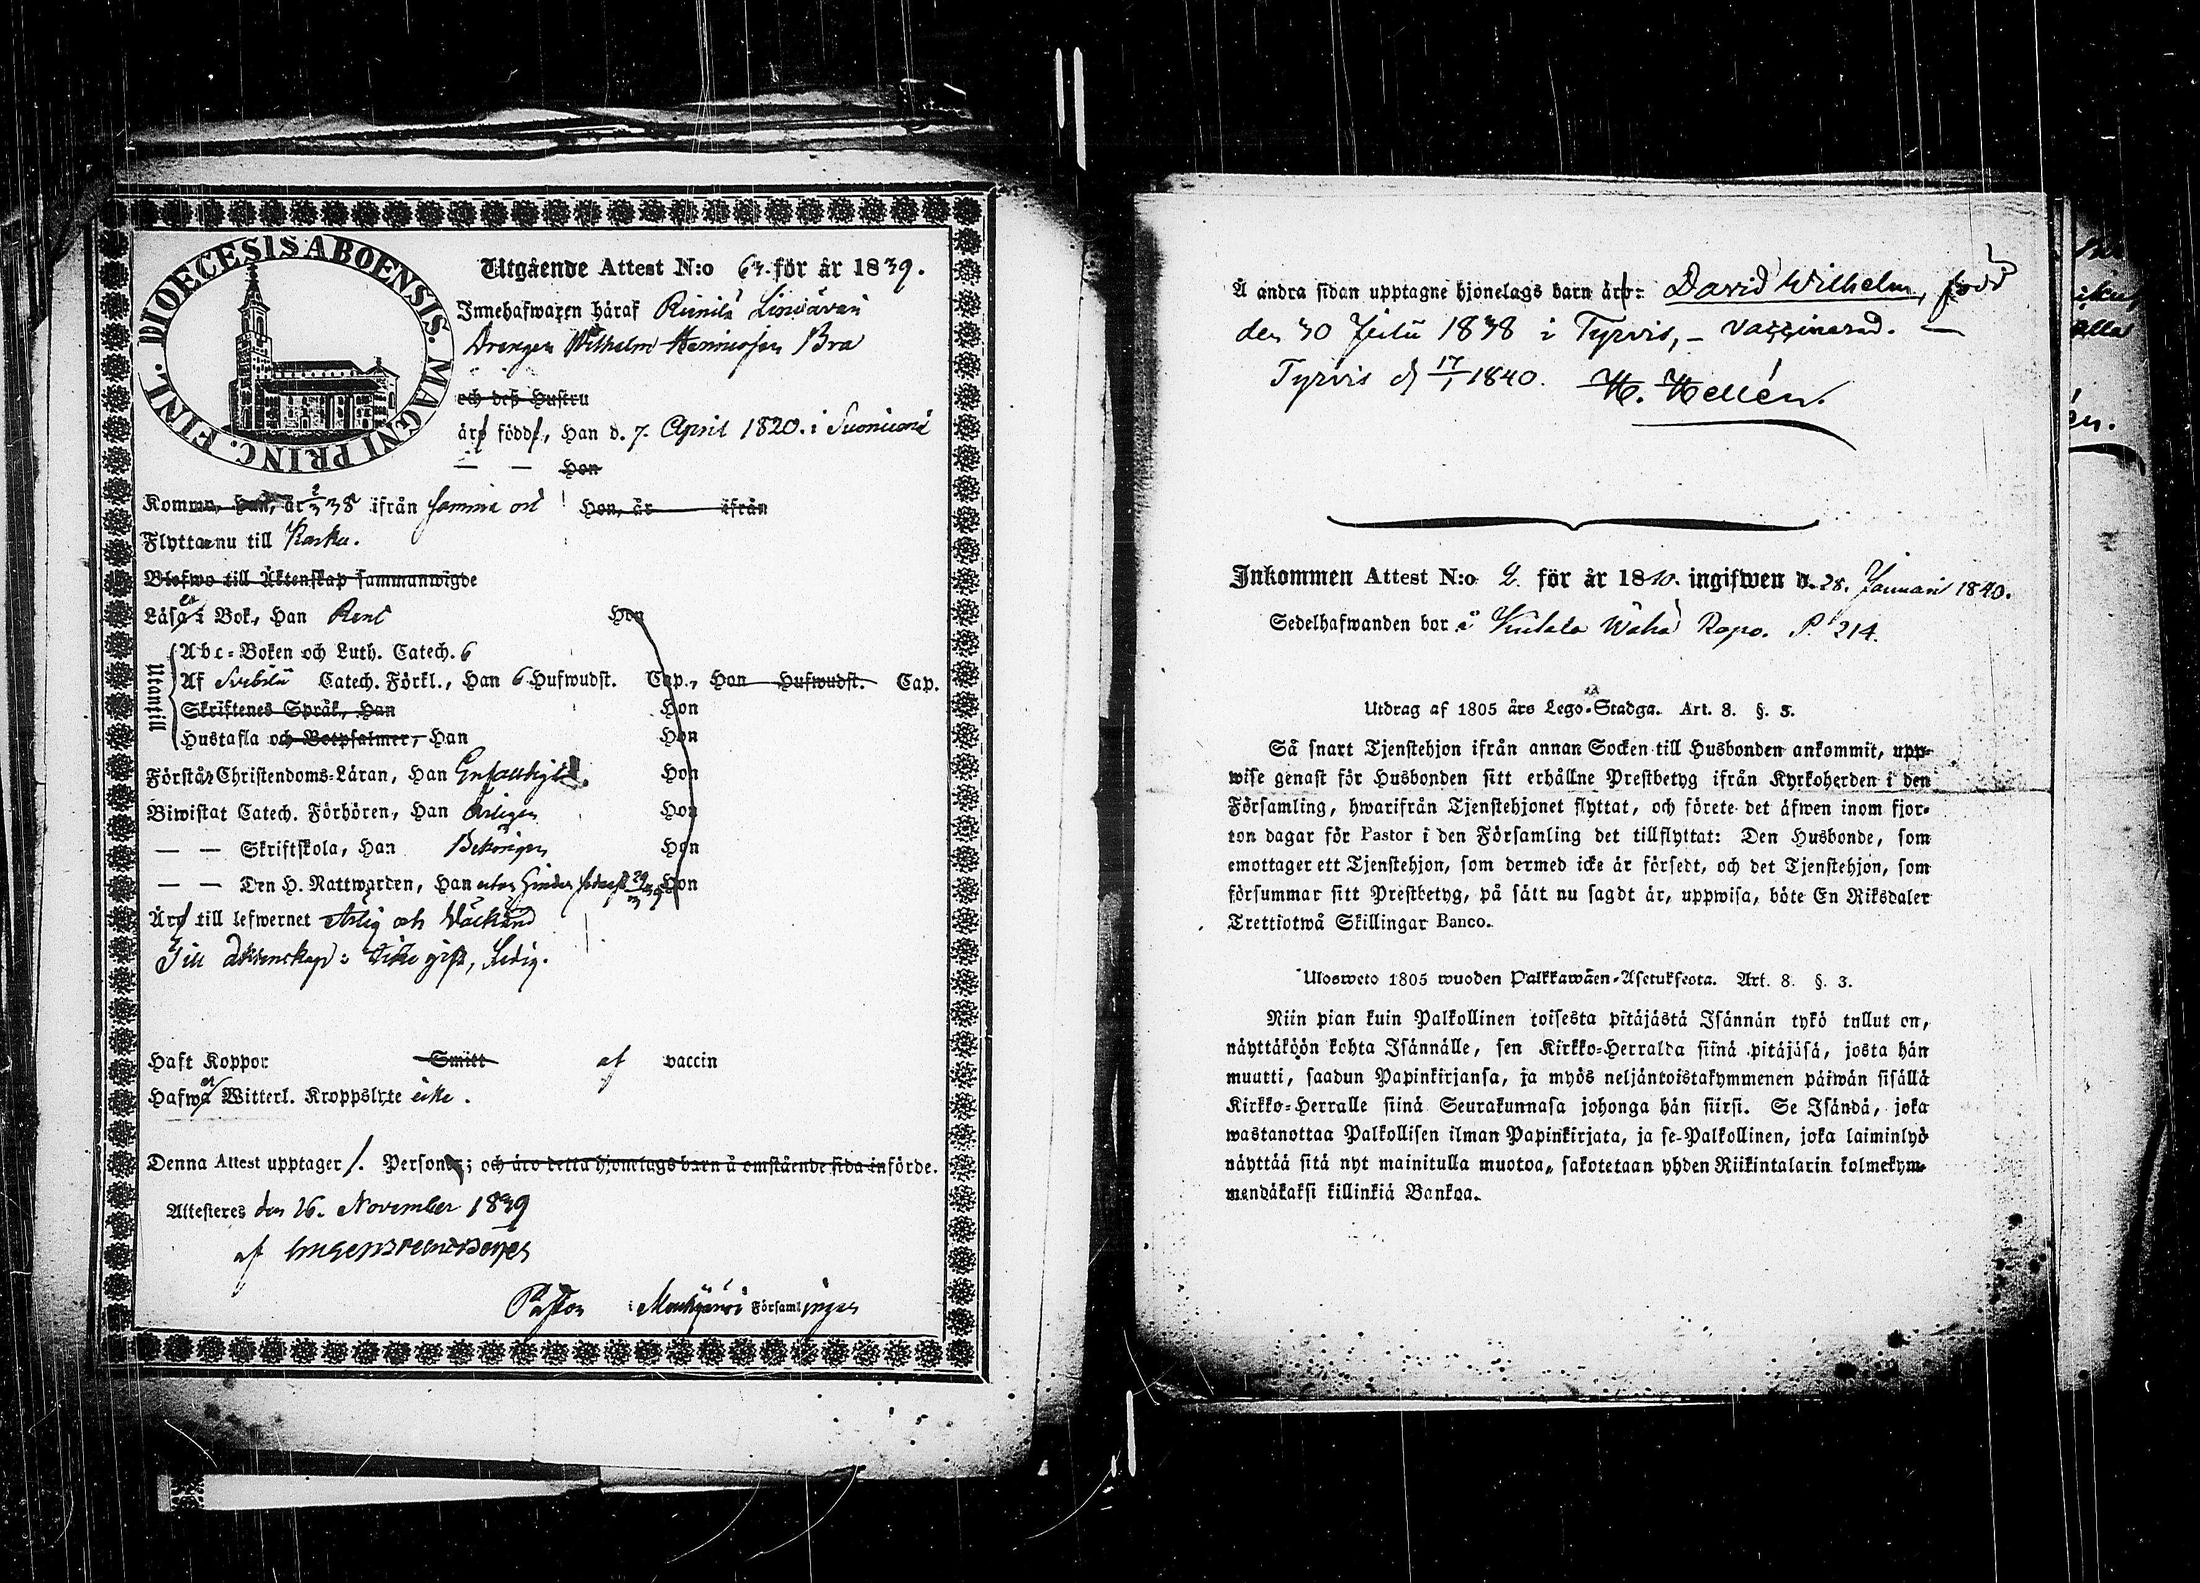 DIOECESIS ABOENSIS. MAGNI PRINC. FINL.
Utgående Attest N:o 63. för år 1839.
Innehafwaren häraf
Drengen Wilhelm Bra
och deß Hustru
äro född, Han d. 7. April 1820. i Suoniemi
— — Hon
Komm Han, är 2/3 38 ifrån samma ort Hon, år ifrån
Flyttar nu till Karku.
Blefwo till Äktenskap sammanwigde
Läser i Bok, Han Rent Hon
Utantill
Abc-Boken och Luth. Catech. 6
Af Svebilii Catech. Förkl., Han 6 Hufwudst. Cap., Hon Hufwudst. Cap.
Skriftenes Språk, Han Hon
Hustafla och Botpsalmer, Han Hon
Förstår Christendoms-Läran, Han Enfaldigt. Hon
Biwistat Catech. Förhören, Han Årligen Hon
— — Skriftskola, Han Behörigen Hon
— — Den H. Nattwarden, Han utan hinder sednast 29/3 39 Hon
Är till lefwernet Ärlig och
Till äktenskap: icke gift, Ledig.
Haft Koppor Smitt af vaccin
Hafwer Witterl. Kroppslyte icke.
Denna Attest upptager 1. Person; och äro detta hjonelags barn å omstående sida införde.
Attesteres den 26. November 1839
af
Pastor i Mouhijärvi Församlingen
Å andra sidan upptagne hjonelags barn är: David Wilhelm, född
den 30 Julii 1838 i Tyrvis, – vaccinerad. —
Tyrvis d 17/1 1840. H. Hellén.
Inkommen Attest N:o 2. för år 1840. ingifwen d. 28. Januari 1840.
Sedelhafwanden bor i Kiulala Wähä Ropo. P. 214.
Utdrag af 1805 års Lego-Stadga. Art. 8. §. 3.
Så snart Tjenstehjon ifrån annan Socken till Husbonden ankommit, upp-
wise genast för Husbonden sitt erhållne Prestbetyg ifrån Kyrkoherden i den
Församling, hwarifrån Tjenstehjonet flyttat, och förete det äfwen inom fjor-
ton dagar för Pastor i den Församling det tillflyttat: Den Husbonde, som
emottager ett Tjenstehjon, som dermed icke är försedt, och det Tjenstehjon, som
försummar sitt Prestbetyg, på sätt nu sagdt är, uppwisa, böte En Riksdaler
Trettiotwå Skillingar Banco.
Ulosweto 1805 wuoden Palkkawäen-Asetuksesta. Art. 8. §. 3.
Niin pian kuin Palkollinen toisesta pitäjästä Isännän tykö tullut on,
näyttäköön kohta Isännälle, sen Kirkko-Herralda siinä pitäjäsä, josta hän
muutti, saadun Papinkirjansa, ja myös neljäntoistakymmenen päiwän sisällä
Kirkko-Herralle siinä Seurakunnasa johonga hän siirsi. Se Isändä, joka
wastanottaa Palkollisen ilman Papinkirjata, ja se Palkollinen, joka laiminlyö
näyttää sitä nyt mainitulla muotoa, sakotetaan yhden Riikintalarin kolmekym-
mendäkaksi killinkiä Bankoa.